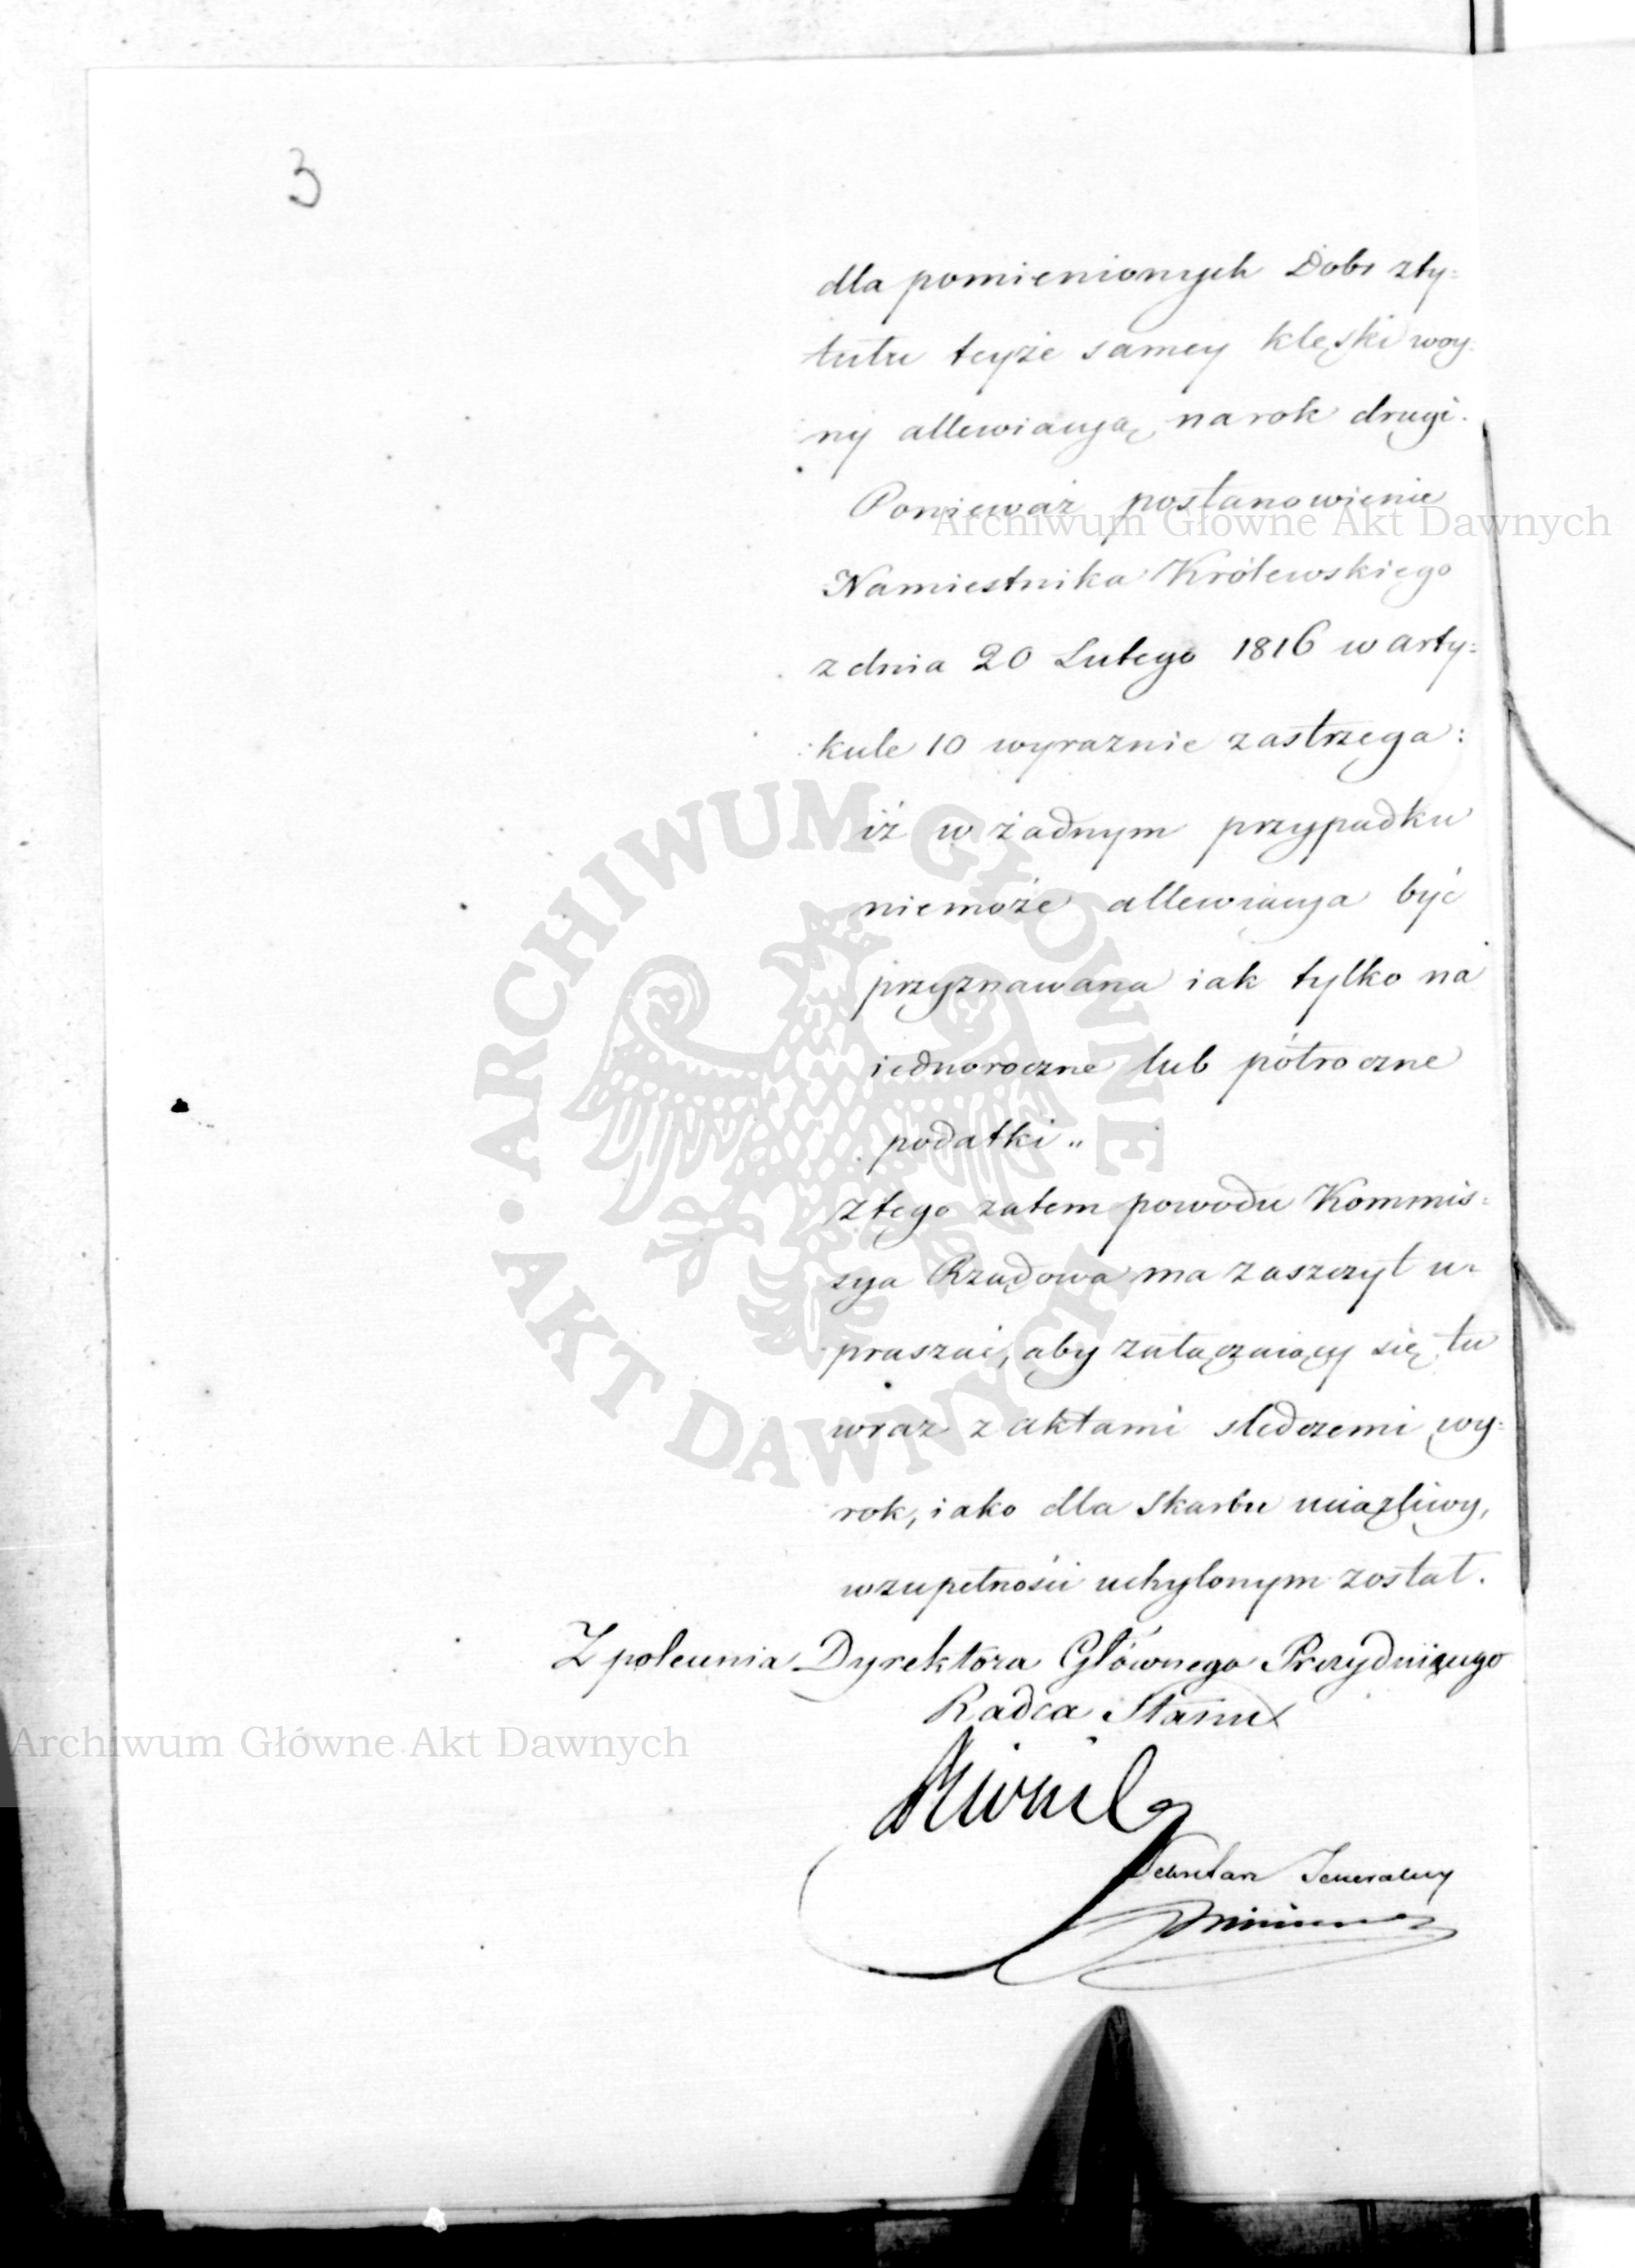 3
dla pomienionych Dobr z ty=
tułu teyże samey klęski woy=
ny allewiacyą na rok drugi.
Ponieważ postanowienie
Namiestnika Królewskiego
z dnia 20 Lutego 1816 w arty=
kule 10 wyraznie zastrzega:
iż w żadnym przypadku
niemoże allewiacya być
przyznawana iak tylko na
iednoroczne lub półroczne
podatki „
z tego zatem powodu Kommis=
sya Rządowa ma zaszczyt u=
praszać, aby załączaiący się tu
wraz z aktami śledczemi wy=
rok, iako dla Skarbu uciążliwy,
w zupełności uchylonym został.
Z polecenia Dyrektora Głównego Prezyduiącego
Radca Stanu
Sekretarz Jeneralny
Archiwum Główne Akt Dawnych
Archiwum Główne Akt Dawnych
ARCHIWUM GŁÓWNE AKT DAWNYCH